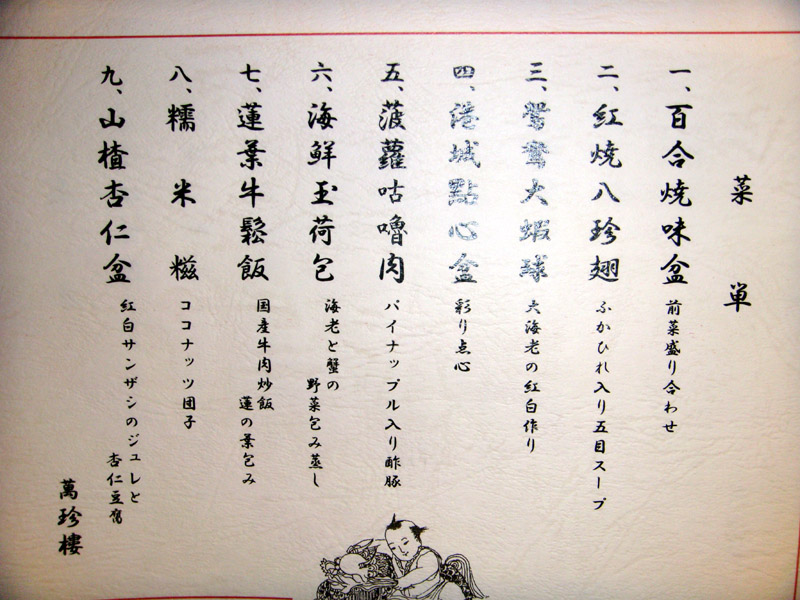 菜単
一、百合焼味盆
前菜盛り合わせ
二、紅焼八珍翅
ふかひれ入り五目スープ
三、鴛鴦大蝦球
大海老の紅白作り
四、港城點心盆
彩り点心
五、菠蘿咕嚕肉
パイナップル入り酢豚
六、海鮮玉荷包
海老と蟹の
野菜包み蒸し
七、蓮葉牛鬆飯
国産牛肉炒飯
蓮の葉包み
八、糯米糍
ココナッツ団子
九、山楂杏仁盆
紅白サンザシのジュレと
杏仁豆腐
萬珍樓